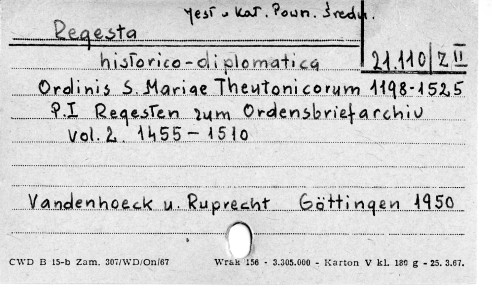 Jest u Kat. Pown. Średn.
Regesta
historico-diplomatica 21.110/Z II
Ordinis S. Mariae Theutonicorum 1198-1525
P.I Regesten zum Ordensbriefarchiv
vol. 2. 1455-1510
Vandenhoeck u. Ruprecht Göttingen 1950
CWD B 15-b Zam. 307/WD/On/67 Wrak 156 - 3.305.000 - Karton V kl. 180 g - 25. 3.67.